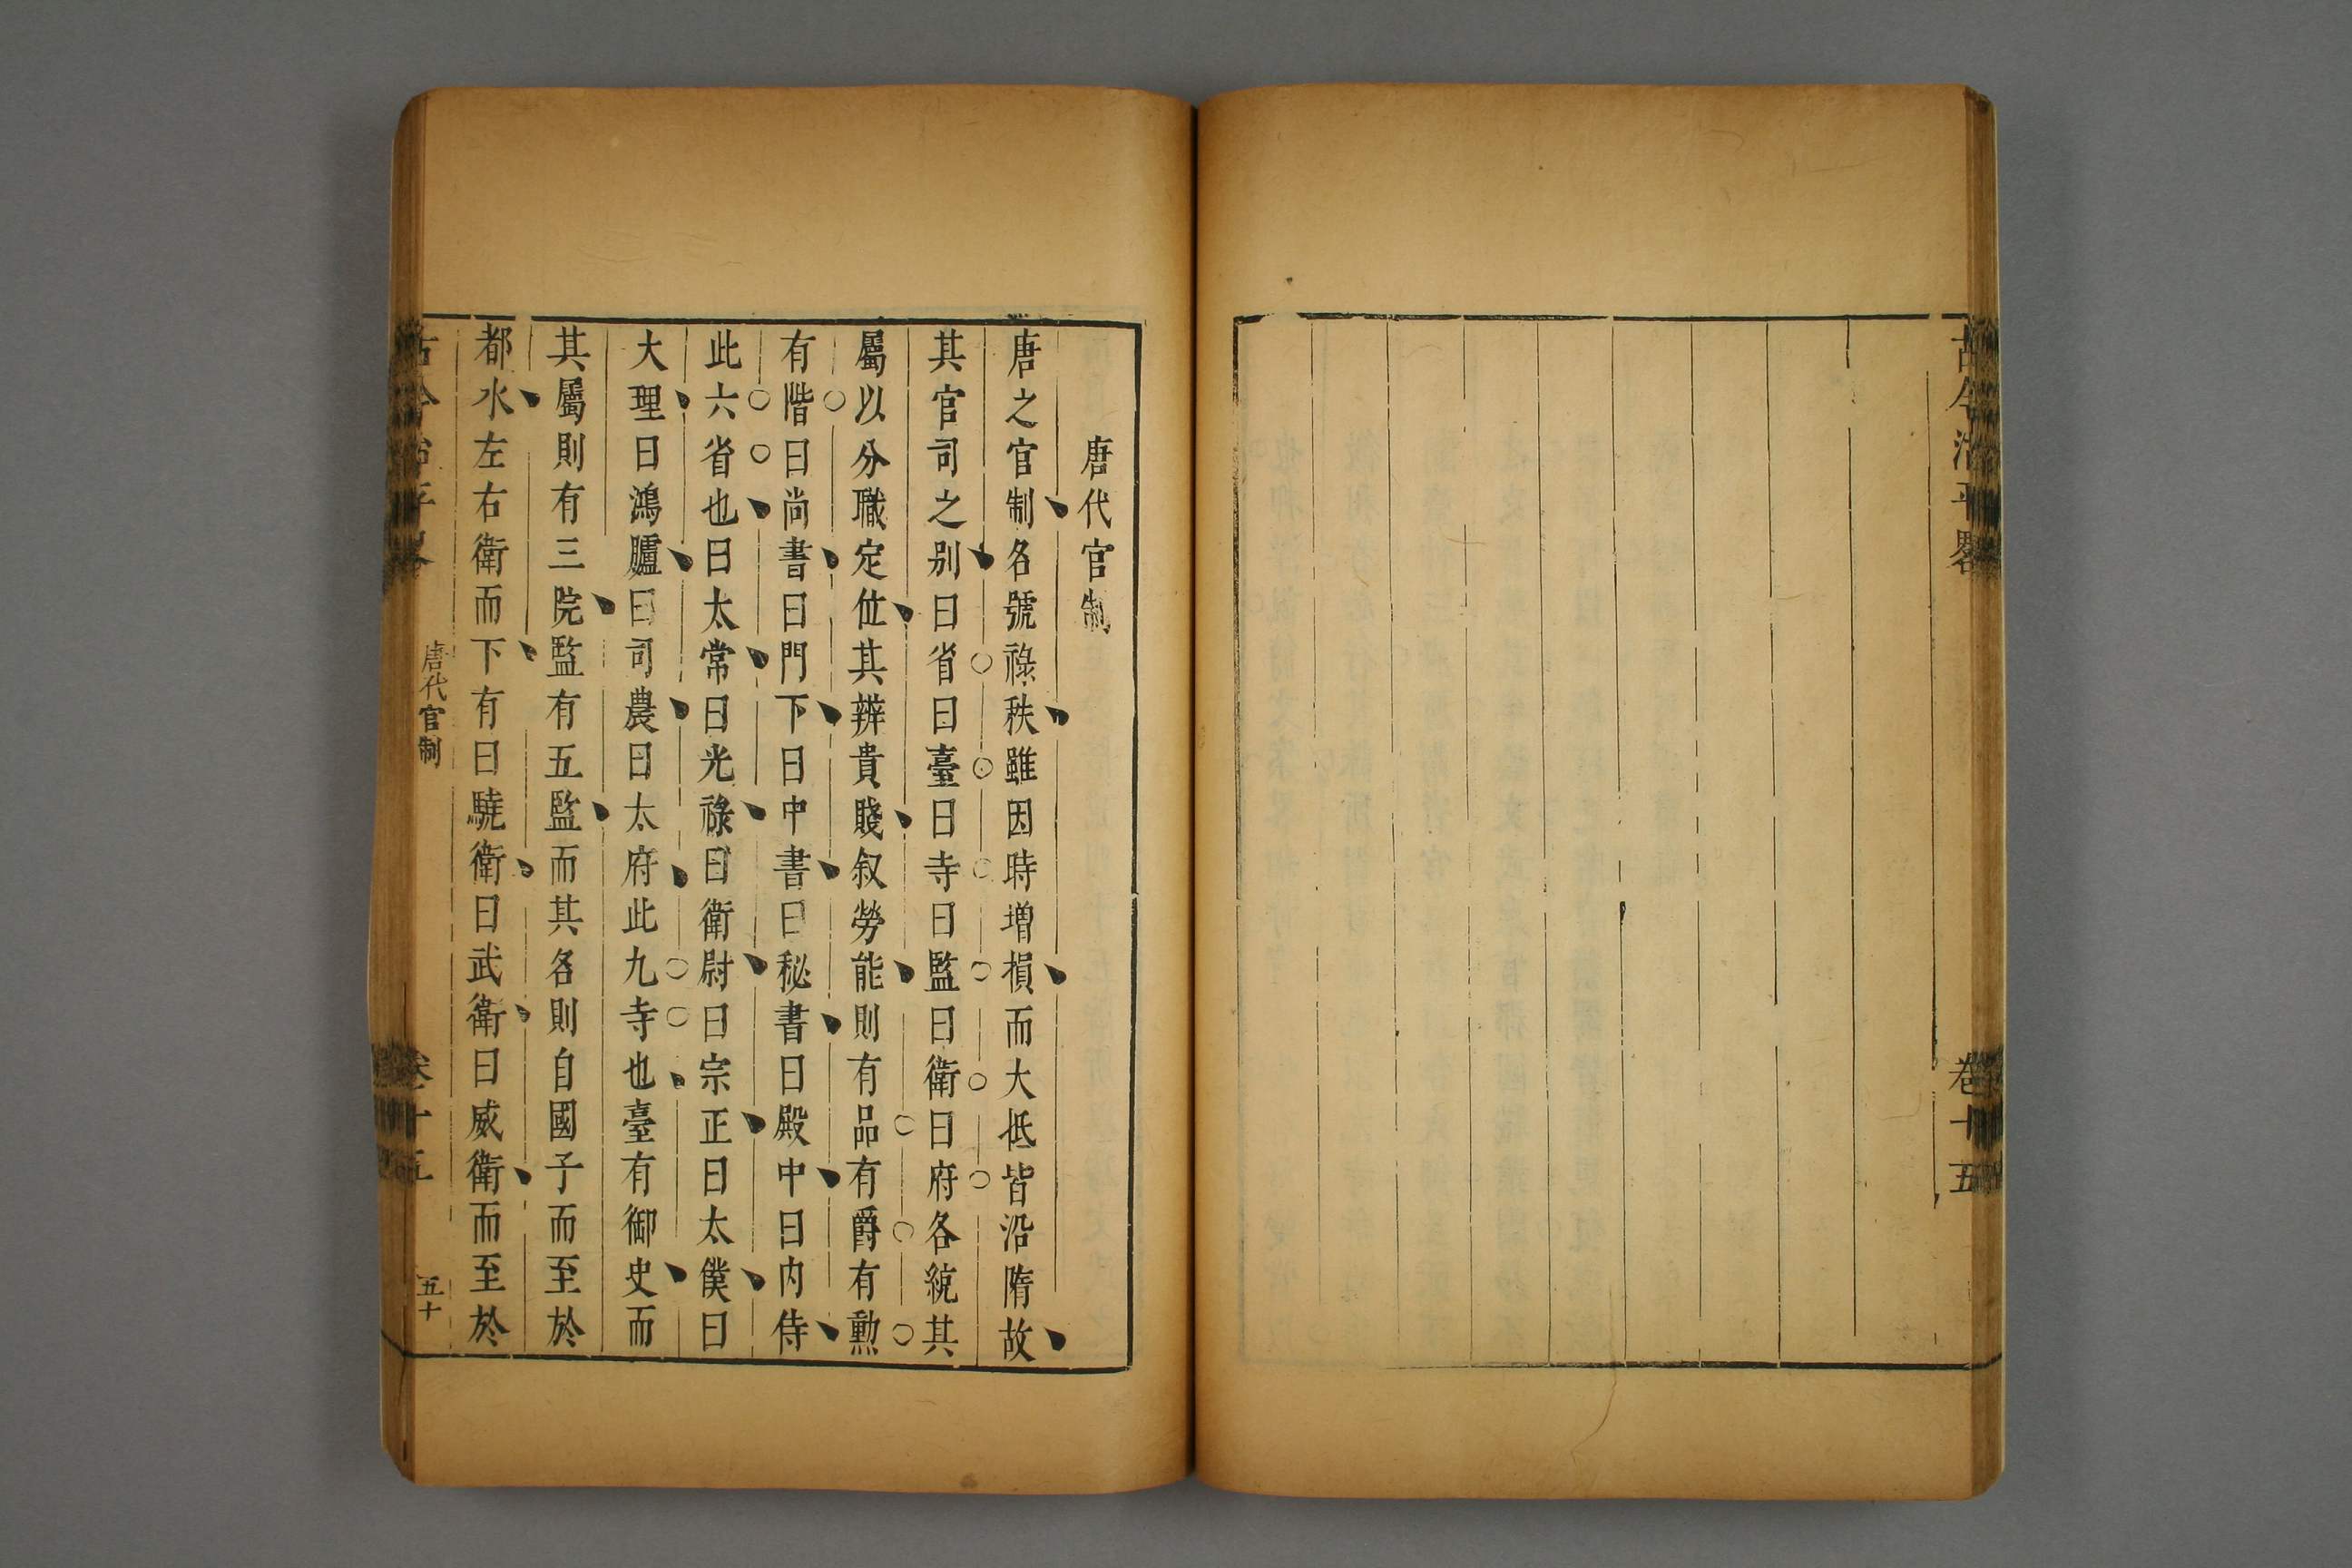 古今治平畧
卷十五
唐代官制
唐之官制各號祿秩雖因時增損而大抵皆沿隋故
其官司之别曰省曰臺曰寺曰監曰衛曰府各統其
屬以分職定位其辨貴賤叙勞能則有品有爵有勲
有階曰尚書曰門下曰中書曰秘書曰殿中曰内侍
此六省也曰太常曰光祿曰衛尉曰宗正曰太僕曰
大理曰鴻臚曰司農曰太府此九寺也臺有御史而
其屬則有三院監有五監而其各則自國子而至於
都水左右衛而下有曰驍衛曰武衛曰威衛而至於
古今治平畧
唐代官制
卷十五
五十